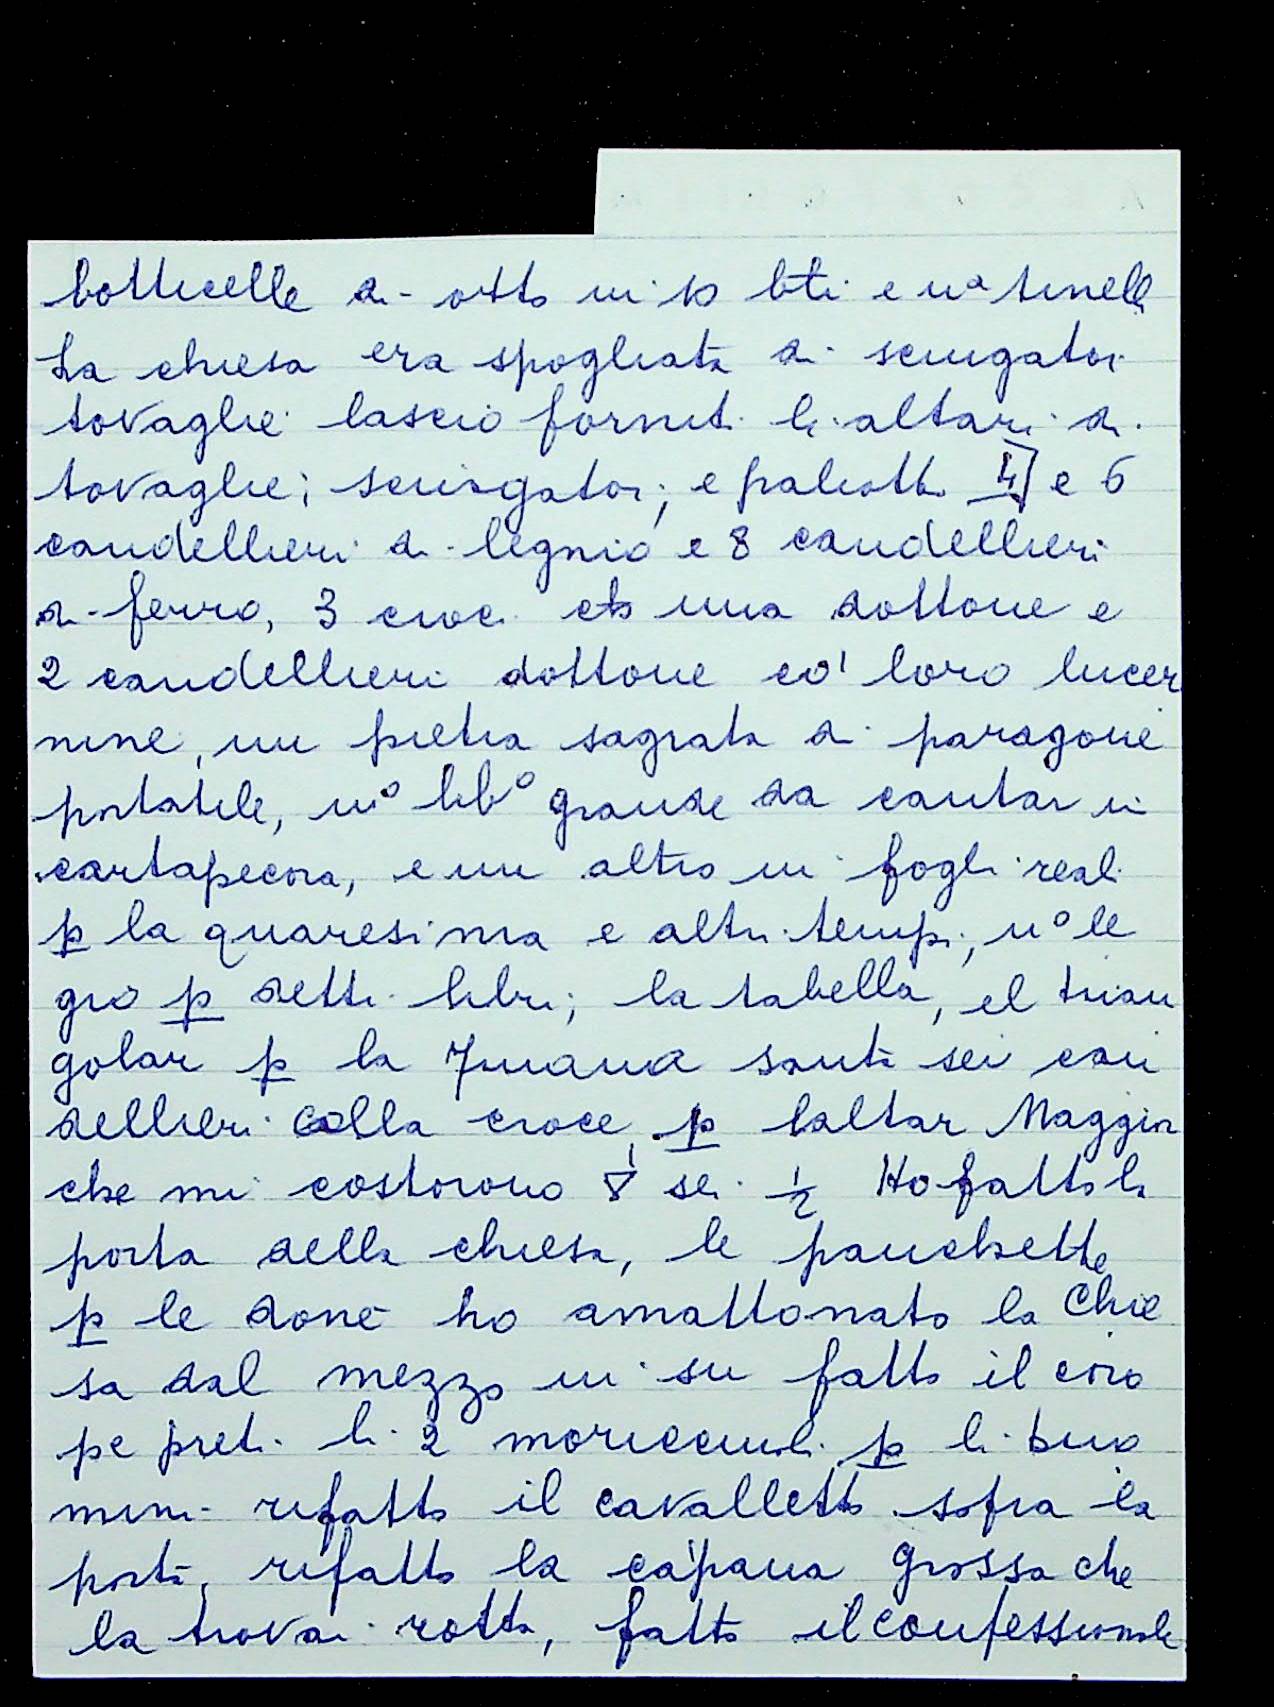 botticelle di otto in 10 bti e na tinella
La chiesa era spogliata di sciugatoi
tovaglie lascio forniti li altari di
tovaglie; sciugatoi, e paliotti 4 e 6
candellieri di legnio e 8 candellieri
di ferro, 3 croci cto una dottone e
2 candellieri dottone co' loro lucer
nine, un pietra sagrata di paragone
portatile, no libo grande da cantar in
cartapecora, e un altro in fogli reali
p la quaresima e altri tempi, no le
gio p detti libri; la tabella, el trian
golar p la 7mana santa sei can
dellieri colla croce p laltar Maggior
che mi costorono ∇ sei ½ Ho fatto la
porta della chiesa, le panchette
p le done ho amattonato la Chie
sa dal mezzo in su fatto il coro
pe preti li 2 moricciuoli p li huo
mini rifatto il cavalletto sopra la
porta, rifatto la capana grossa che
la trovai rotta, fatto il confessionale